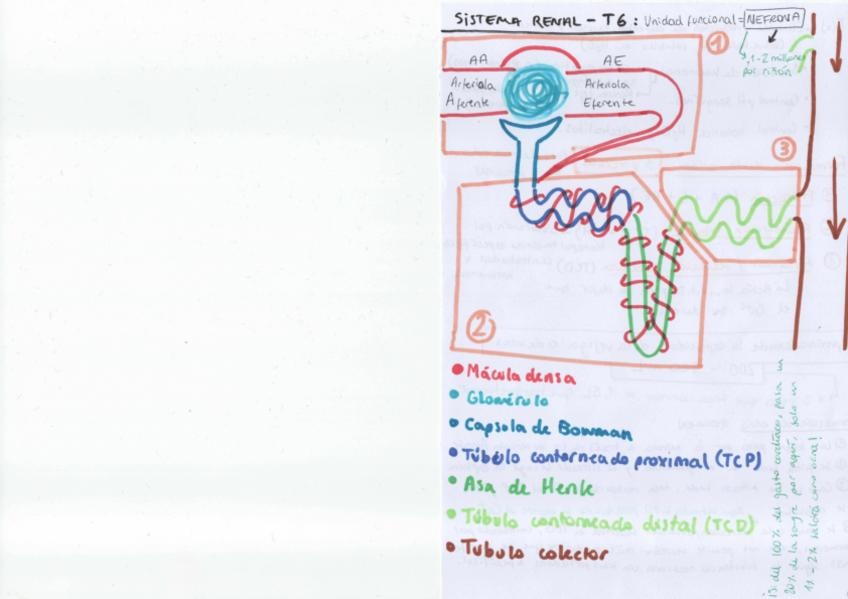 SISTEMA RENAL - T6: Unidad funcional = NEFRONA
1-2 millones
por riñón
1
AA
AE
Arteriola
Aferente
Arteriola
Eferente
3
2
• Mácula densa
• Glomérulo
• Capsula de Bowman
• Túbulo contorneado proximal (TCP)
• Asa de Henle
• Túbulo contorneado distal (TCD)
• Tubulo colector
del 100% del gasto cardíaco, pasa un
20% de la sangre por aquí, solo un
1% - 2% saldrá como orina!